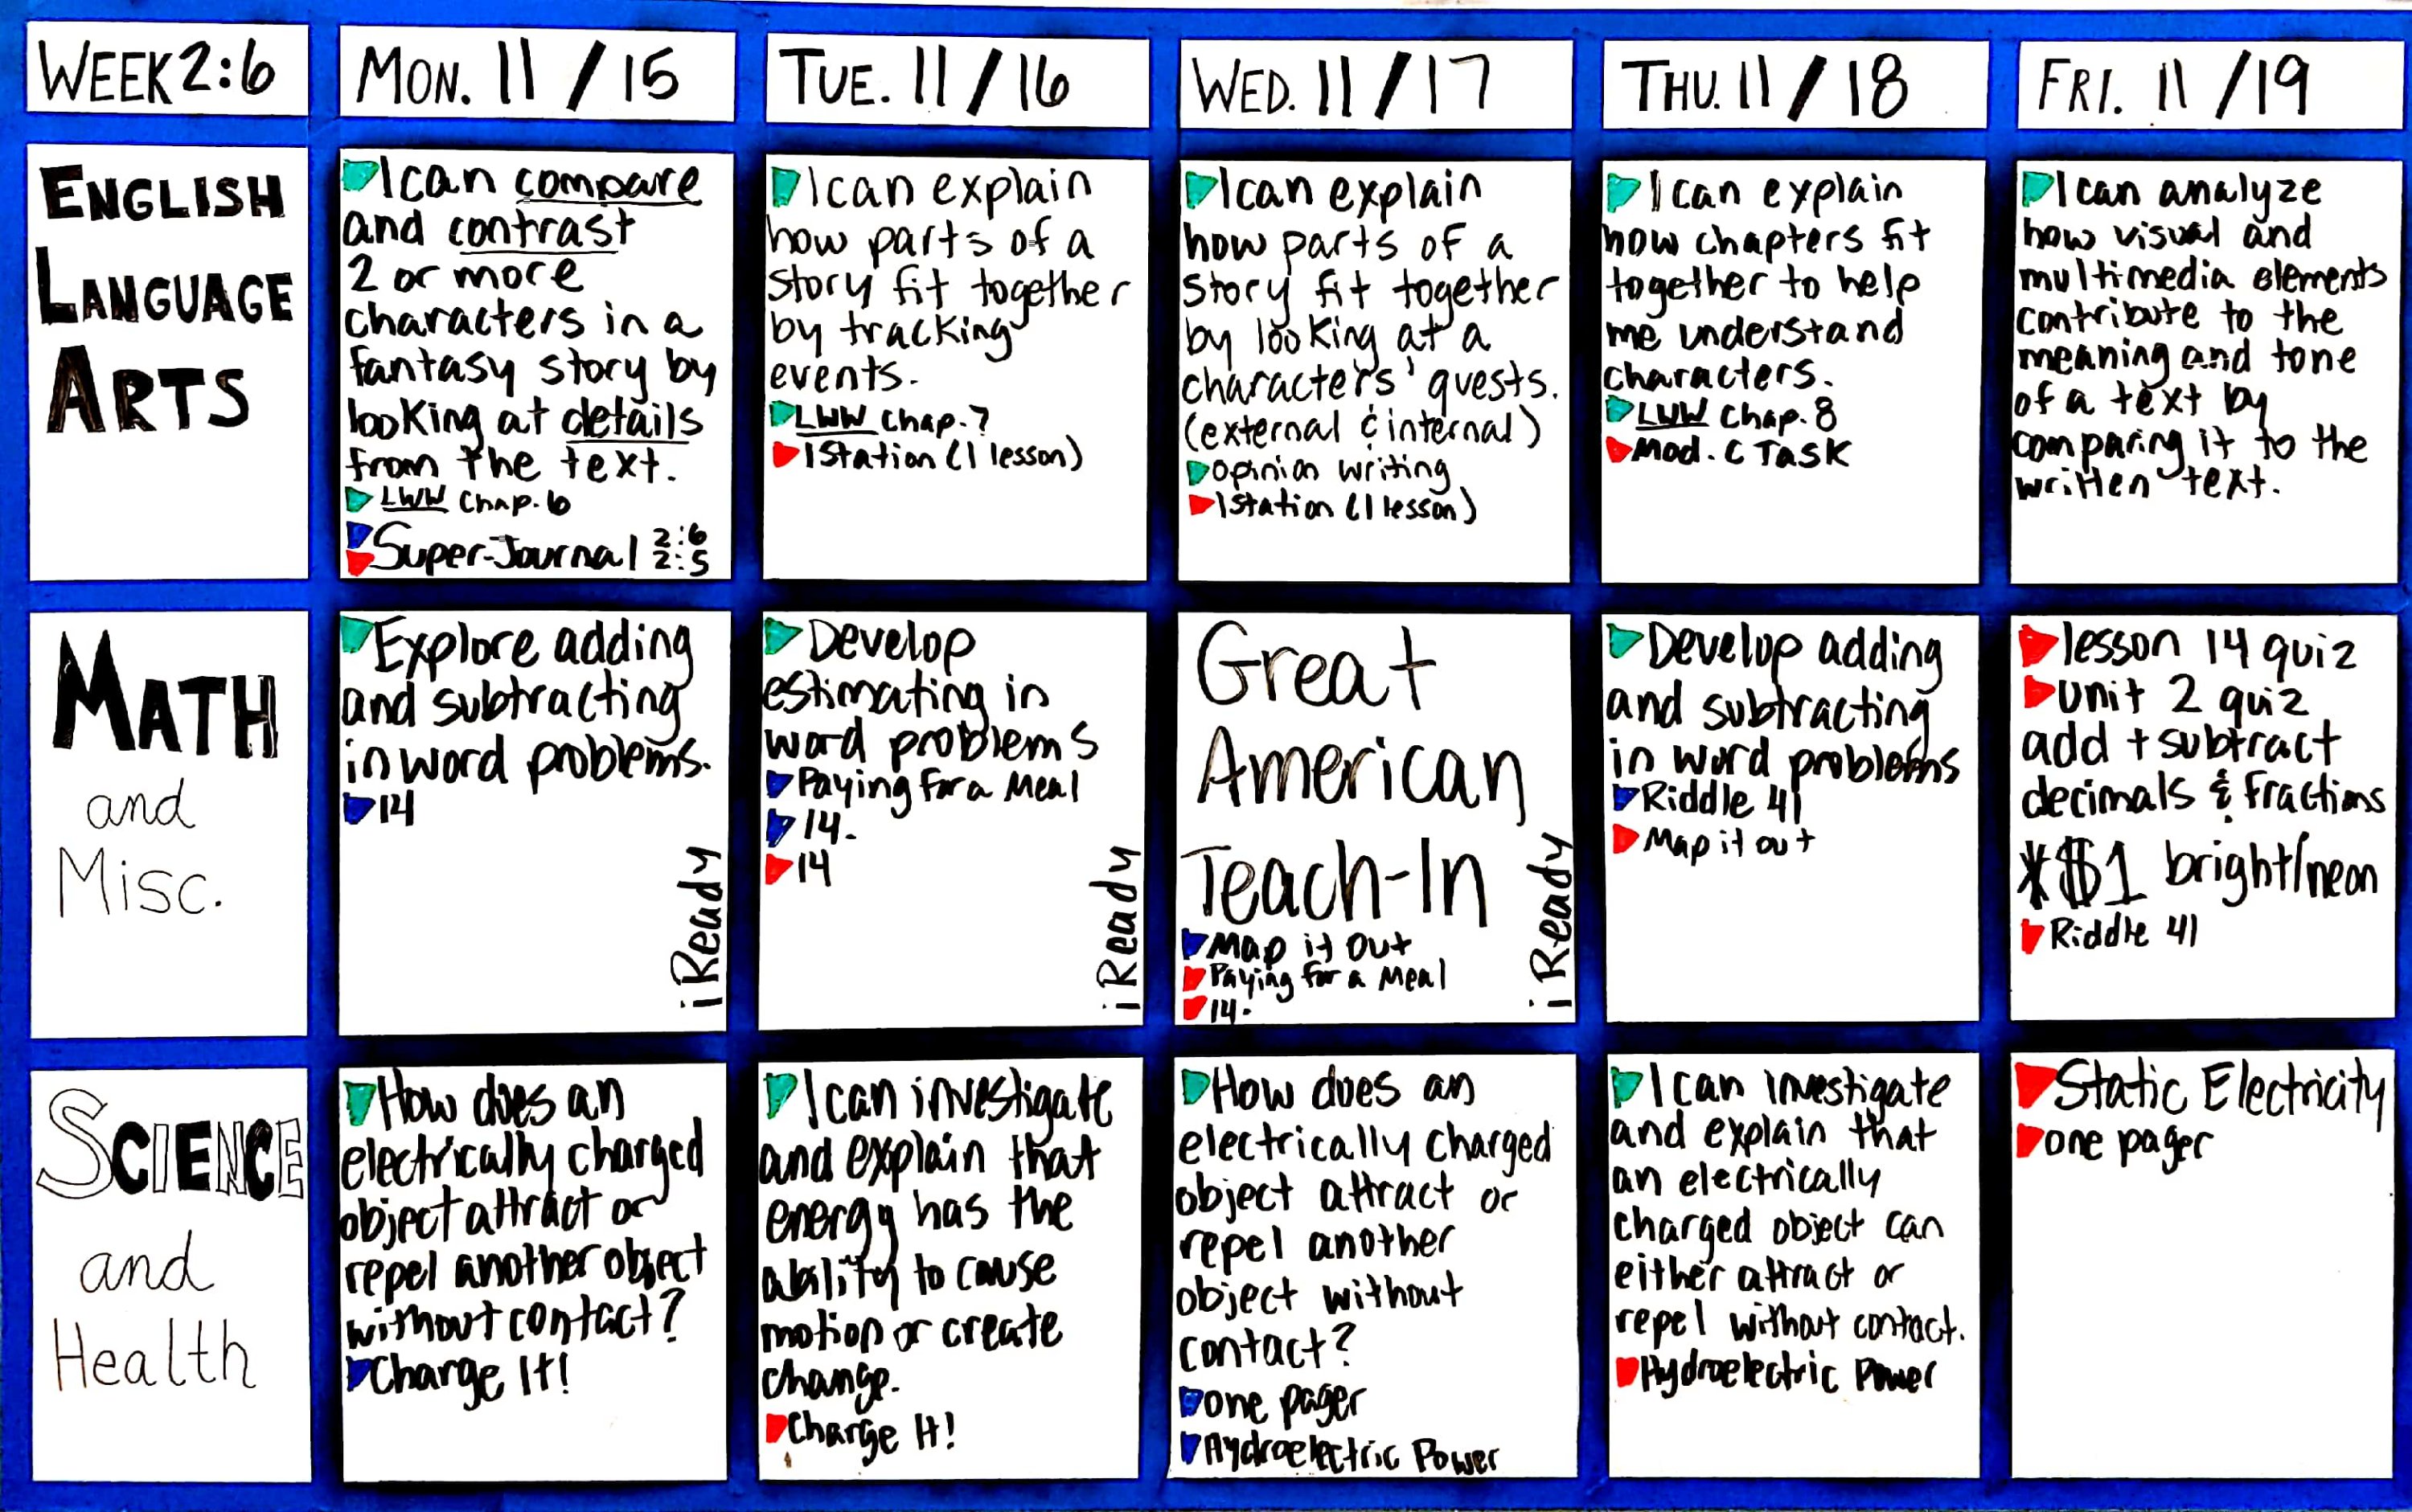 WEEK 2:6
MON. 11/15
TUE. 11/16
WED. 11/17
THU. 11/18
FRI. 11/19
ENGLISH
LANGUAGE
ARTS
I can compare
and contrast
2 or more
characters in a
fantasy story by
looking at details
from the text.
LWW Chap. 6
Super-Journal 2:6
2:5
I can explain
how parts of a
story fit together
by tracking
events.
LWW Chap. 7
Istation (1 lesson)
I can explain
how parts of a
story fit together
by looking at a
characters' quests.
(external & internal)
opinion writing
Istation (1 lesson)
I can explain
how chapters fit
together to help
me understand
characters.
LWW Chap. 8
Mod. C Task
I can analyze
how visual and
multimedia elements
contribute to the
meaning and tone
of a text by
comparing it to the
written text.
MATH
and
Misc.
Explore adding
and subtracting
in word problems.
14
iReady
Develop
estimating in
word problems
Paying for a Meal
14.
14
iReady
Great
American
Teach-In
Map it out
Paying for a Meal
14.
iReady
Develop adding
and subtracting
in word problems
Riddle 41
Map it out
lesson 14 quiz
unit 2 quiz
add + subtract
decimals & fractions
*$1 bright/neon
Riddle 41
SCIENCE
and
Health
How does an
electrically charged
object attract or
repel another object
without contact?
Charge It!
I can investigate
and explain that
energy has the
ability to cause
motion or create
change.
Charge It!
How does an
electrically charged
object attract or
repel another
object without
contact?
one pager
Hydroelectric Power
I can investigate
and explain that
an electrically
charged object can
either attract or
repel without contact.
Hydroelectric Power
Static Electricity
one pager